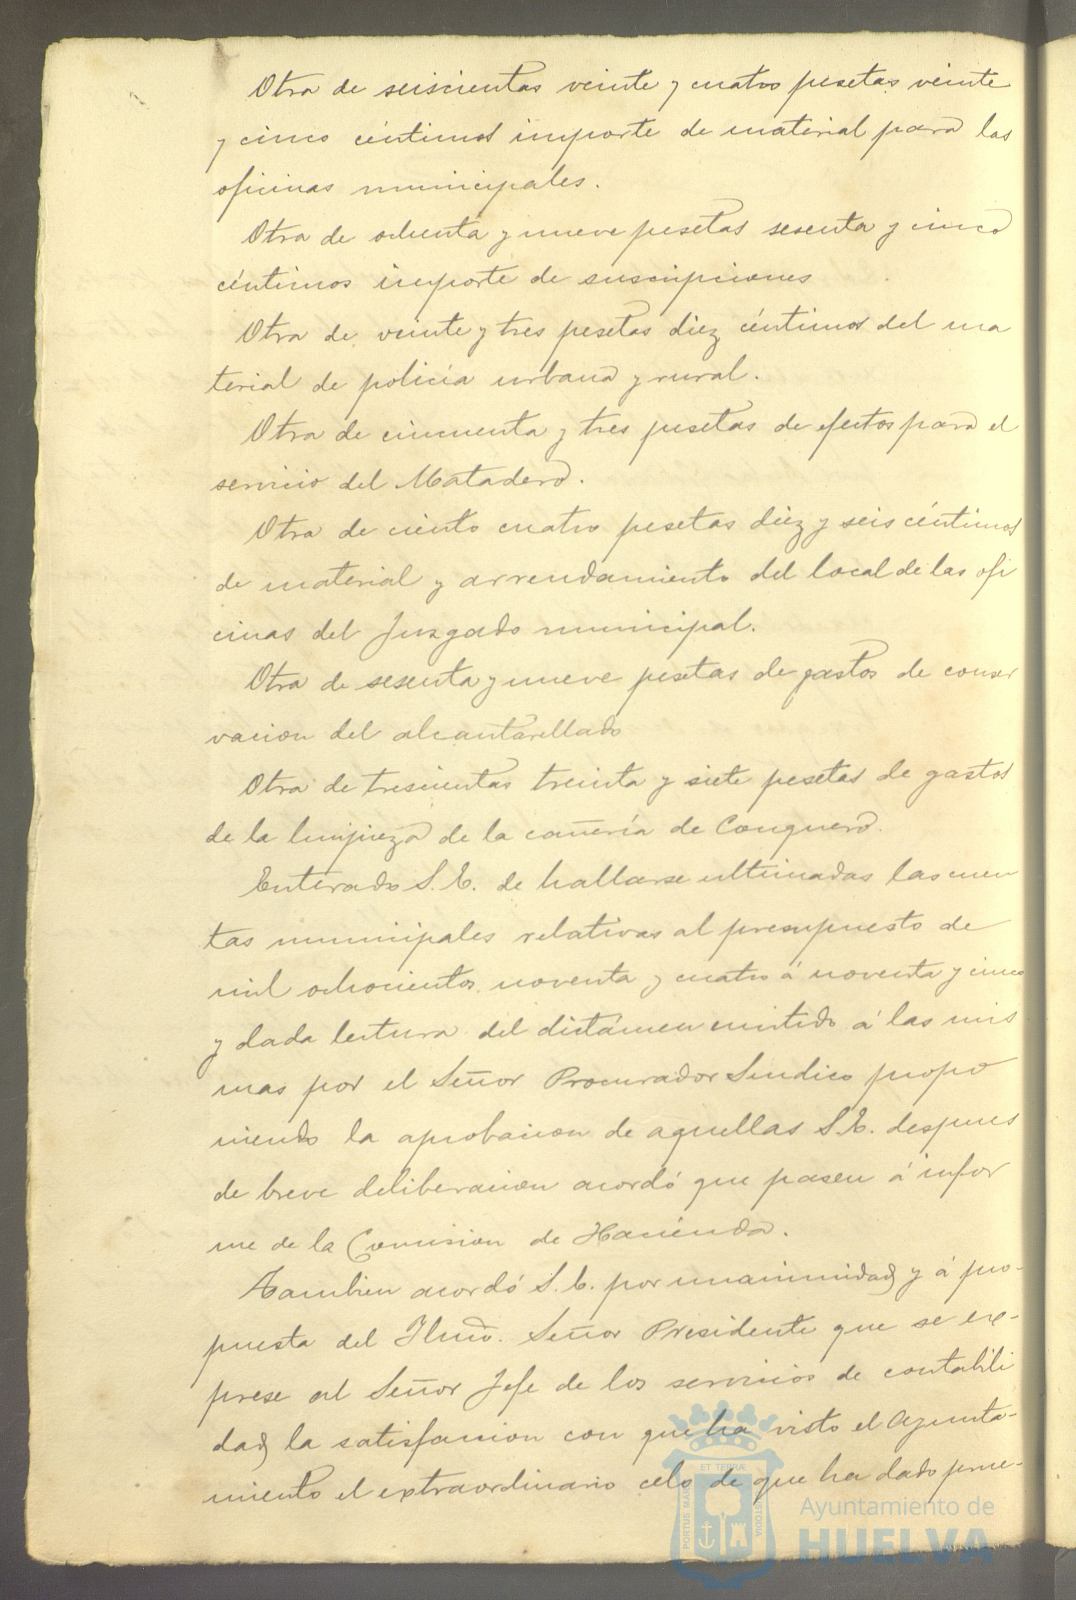 Otra de seiscientas veinte y cuatro pesetas veinte
y cinco céntimos importe de material para las
oficinas municipales.
Otra de ochenta y nueve pesetas sesenta y cinco
céntimos importe de suscripciones
Otra de veinte y tres pesetas diez céntimos del ma
terial de policía urbana y rural.
Otra de cincuenta y tres pesetas de efectos para el
servicio del Matadero.
Otra de ciento cuatro pesetas diez y seis céntimos
de material y arrendamiento del local de las ofi
cinas del Juzgado municipal.
Otra de sesenta y nueve pesetas de gastos de conser
vacion del alcantarillado
Otra de trescientas treinta y siete pesetas de gastos
de la limpieza de la cañería de Conquero.
Enterado S.E. de hallarse ultimadas las cuen
tas municipales relativas al presupuesto de
mil ochocientos noventa y cuatro á noventa y cinco
y dada lectura del dictámen emitido á las mis
mas por el Señor Procurador Sindico propo
niendo la aprobacion de aquellas S.E. despues
de breve deliberacion acordó que pasen á infor
me de la Comision de Hacienda.
Tambien acordó S.E. por unanimidad y á pro-
puesta del Ilmo. Señor Presidente que se ex-
prese al Señor Jefe de los servicios de contabili
dad la satisfaccion con que ha visto el Ayunta-
miento el extraordinario celo de que ha dado prue-
ET TERRÆ
PORTUS MARIS
CUSTODIA
Ayuntamiento de
HUELVA